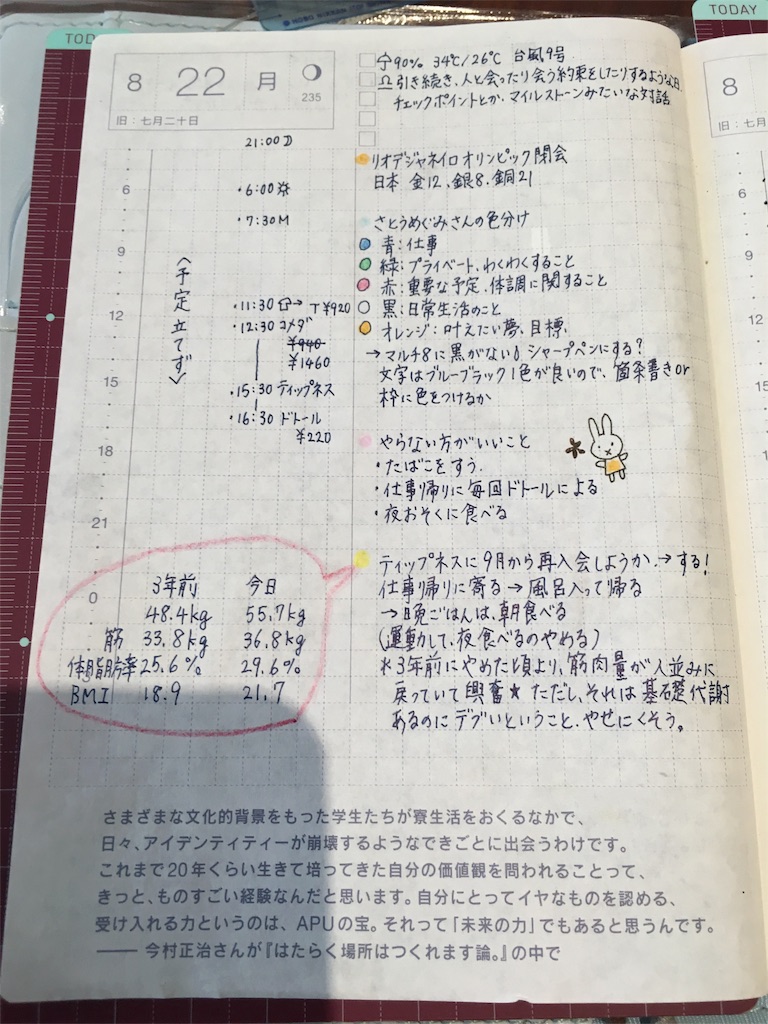 TODAY
TODAY
8 22 月
235
旧:七月二十日
8
旧:七
90% 34℃/26℃ 台風9号
引き続き、人と会ったり会う約束をしたりするような日
チェックポイントとか、マイルストーンみたいな対話
21:00
・6:00
・7:30 M
〈予定立てず〉
・11:30 → T¥920
・12:30 コメダ
¥940
¥1460
・15:30 ティップネス
・16:30 ドトール
¥220
6
9
12
15
18
21
0
リオデジャネイロオリンピック閉会
日本 金12、銀8、銅21
さとうめぐみさんの色分け
青:仕事
緑:プライベート、わくわくすること
赤:重要な予定、体調に関すること
黒:日常生活のこと
オレンジ:叶えたい夢、目標、
→マルチ8に黒がない! シャープペンにする?
文字はブルーブラック1色が良いので、箇条書きor
枠に色をつけるか
やらない方がいいこと
・たばこをすう.
・仕事帰りに毎回ドトールによる
・夜おそくに食べる
ティップネスに9月から再入会しようか.→する!
仕事帰りに寄る→風呂入って帰る
→晩ごはんは、朝食べる
(運動して、夜食べるのやめる)
*3年前にやめた頃より、筋肉量が人並みに
戻っていて興奮★ ただし、それは基礎代謝
あるのにデブいということ、やせにくそう。
3年前 今日
48.4kg 55.7kg
筋 33.8kg 36.8kg
体脂肪率 25.6% 29.6%
BMI 18.9 21.7
さまざまな文化的背景をもった学生たちが寮生活をおくるなかで、
日々、アイデンティティーが崩壊するようなできごとに出会うわけです。
これまで20年くらい生きて培ってきた自分の価値観を問われることって、
きっと、ものすごい経験なんだと思います。自分にとってイヤなものを認める、
受け入れる力というのは、APUの宝。それって「未来の力」でもあると思うんです。
—— 今村正治さんが『はたらく場所はつくれます論。』の中で
6
9
12